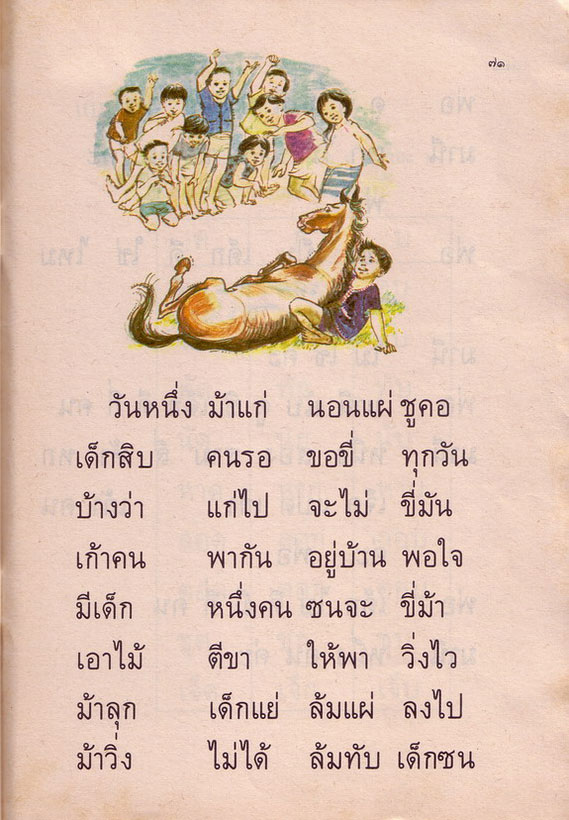 ๗๑
วันหนึ่ง ม้าแก่ นอนแผ่ ชูคอ
เด็กสิบ คนรอ ขอขี่ ทุกวัน
บ้างว่า แก่ไป จะไม ขี่มัน
เก้าคน พากัน อยู่บ้าน พอใจ
มีเด็ก หนึ่งคน ซนจะ ขี่ม้า
เอาไม้ ตีขา ให้พา วิ่งไว
ม้าลุก เด็กแย่ ล้มแผ่ ลงไป
ม้าวิ่ง ไม่ได้ ล้มทับ เด็กซน